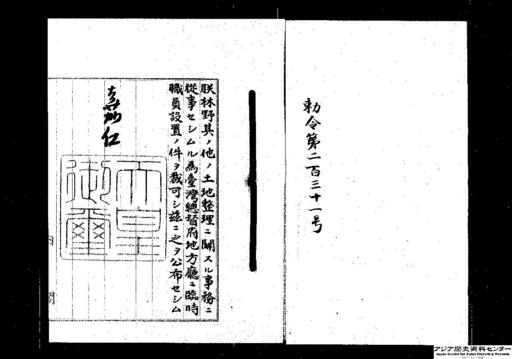 勅令第二百三十一号
朕林野其ノ他ノ土地整理ニ關スル事務ニ
從事セシムル為臺灣總督府地方廳ニ臨時
職員設置ノ件ヲ裁可シ玆ニ之ヲ公布セシム
嘉仁
天皇
御璽
内閣
アジア歴史資料センター
Japan Center for Asian Historical Records